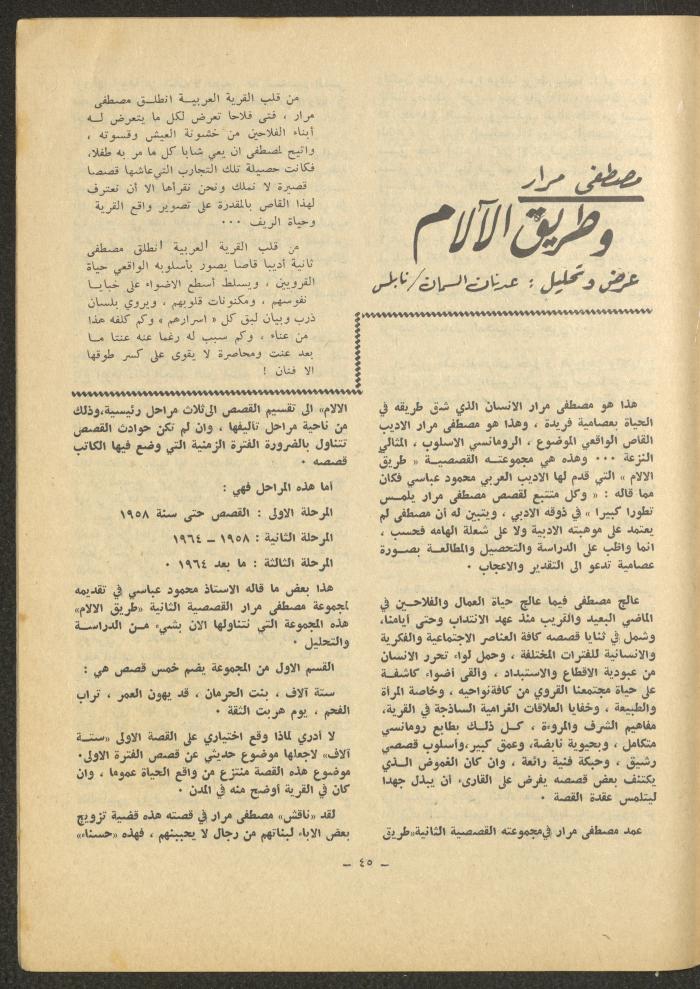 مصطفى مرار
وطريق الآلام
عرض وتحليل : عدنان السمان/نابلس
من قلب القرية العربيــة انطلــق مصطفى
مرار ، فتى فلاحا تعرض لكل ما يتعرض لــه
أبناء الفلاحين من خشونة العيش وقسوته ،
واتيح لمصطفى ان يعي شابا كل ما مر به طفلا،
فكانت حصيلة تلك التجارب التي عاشها قصصا
قصيرة لا نملك ونحن نقرأها الا أن نعترف
لهذا القاص بالمقدرة على تصوير واقع القرية
وحياة الريف ٠٠٠
من قلب القرية العربية انطلق مصطفى
ثانية أديبا قاصا يصور بأسلوبه الواقعي حياة
القرويين ، ويسلط أسطع الاضواء على خبايــا
نفوسهم ، ومكنونات قلوبهم ، ويروي بلسان
ذرب وبيان لبق كل « اسرارهم » وكم كلفه هذا
من عناء ، وكم سبب له رغما عنه عنتا مــا
بعد عنت ومحاصرة لا يقوى على كسر طوقها
الا فنان !
هذا هو مصطفى مرار الانسان الذي شق طريقه في
الحياة بعصامية فريدة ، وهذا هو مصطفى مرار الاديب
القاص الواقعي الموضوع ، الرومانسي الاسلوب ، المثالي
النزعة ٠٠٠ وهذه هي مجموعتــه القصصيــة « طريق
الالام » التي قدم لها الاديب العربي محمود عباسي فكان
مما قاله : « وكل متتبع لقصص مصطفى مرار يلمــس
تطورا كبيرا » في ذوقه الادبي ، ويتبين له أن مصطفى لم
يعتمد على موهبته الادبية ولا على شعلة الهامه فحسب ،
انما واظب على الدراسة والتحصيل والمطالعــة بصــورة
عصامية تدعو الى التقدير والاعجاب ٠
عالج مصطفى فيما عالج حياة العمال والفلاحــين في
الماضي البعيد والقريب منذ عهد الانتداب وحتى أيامنا،
وشمل في ثنايا قصصه كافة العناصر الاجتماعية والفكرية
والانسانية للفترات المختلفة ، وحمل لواء تحرر الانسان
من عبودية الاقطاع والاستبداد ، وألقى أضواء كاشفــة
على حياة مجتمعنا القروي من كافة نواحيه ، وخاصة المرأة
والطبيعة ، وخفايا العلاقات الغرامية الساذجة في القرية،
مفاهيم الشرف والمروءة ، كــل ذلــك بطابع رومانسي
متكامل ، وبحيوية نابضة، وعمق كبير،وأسلوب قصصي
رشيق ، وحبكة فنية رائعة ، وان كان الغموض الــذي
يكتنف بعض قصصه يفرض على القارىء أن يبذل جهدا
ليتلمس عقدة القصة ٠
عمد مصطفى مرار في مجموعته القصصية الثانية«طريق
الالام» الى تقسيم القصص الى ثلاث مراحل رئيسية،وذلك
من ناحية مراحل تاليفها ، وان لم تكن حوادث القصص
تتناول بالضرورة الفترة الزمنية التي وضع فيها الكاتب
قصصه ٠
أما هذه المراحل فهي :
المرحلة الاولى : القصص حتى سنة ١٩٥٨
المرحلة الثانية : ١٩٥٨ – ١٩٦٤
المرحلة الثالثة : ما بعد ١٩٦٤ ٠
هذا بعض ما قاله الاستاذ محمود عباسي في تقديمه
لمجموعة مصطفى مرار القصصية الثانية «طريق الالام»
هذه المجموعة التي نتناولها الان بشيء مــن الدراســة
والتحليل ٠
القسم الاول من المجموعة يضم خمس قصص هي :
ستة آلاف ، بنت الحرمان ، قد يهون العمر ، تراب
الفحم ، يوم هربت الثقة ٠
لا أدري لماذا وقع اختياري على القصة الاولى «ستــة
آلاف» لاجعلها موضوع حديثي عن قصص الفترة الاولى٠
موضوع هذه القصة منتزع من واقع الحياة عموما ، وان
كان في القرية أوضح منه في المدن ٠
لقد «ناقش» مصطفى مرار في قصته هذه قضية تزويج
بعض الاباء لبناتهم من رجال لا يحببنهم ، فهذه «حسناء»
– ٤٥ –